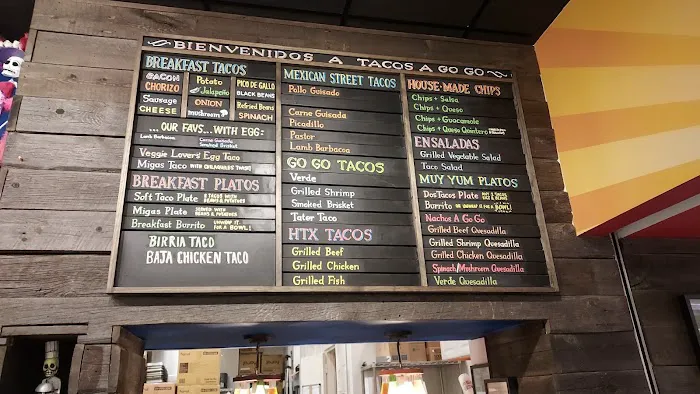 BIENVENIDOS A TACOS A GO GO
BREAKFAST TACOS
BACON
CHORIZO
Sausage
CHEESE
Potato
Jalapeño
ONION
mushroom
PICO DE GALLO
BLACK BEANS
Refried Beans
SPINACH
...OUR FAVS...WITH EGG:
Lamb Barbacoa
Carne Guisada
Smoked Brisket
Veggie Lovers Egg Taco
Migas Taco
BREAKFAST PLATOS
Soft Taco Plate 2 TACOS WITH BEANS & POTATOES
Migas Plate SERVED WITH BEANS & POTATOES
Breakfast Burrito UNWRAP IT FOR A BOWL!
BIRRIA TACO
BAJA CHICKEN TACO
MEXICAN STREET TACOS
Pollo Guisado
Carne Guisada
Picadillo
Pastor
Lamb Barbacoa
GO GO TACOS
Verde
Grilled Shrimp
Smoked Brisket
Tater Taco
HTX TACOS
Grilled Beef
Grilled Chicken
Grilled Fish
HOUSE-MADE CHIPS
Chips + Salsa
Chips + Queso
Chips + Guacamole
Chips + Queso Quintero
ENSALADAS
Grilled Vegetable Salad
Taco Salad
MUY YUM PLATOS
Dos Tacos Plate
Burrito OR UNWRAP IT FOR A BOWL!
Nachos A Go Go
Grilled Beef Quesadilla
Grilled Shrimp Quesadilla
Grilled Chicken Quesadilla
Spinach/Mushroom Quesadilla
Verde Quesadilla